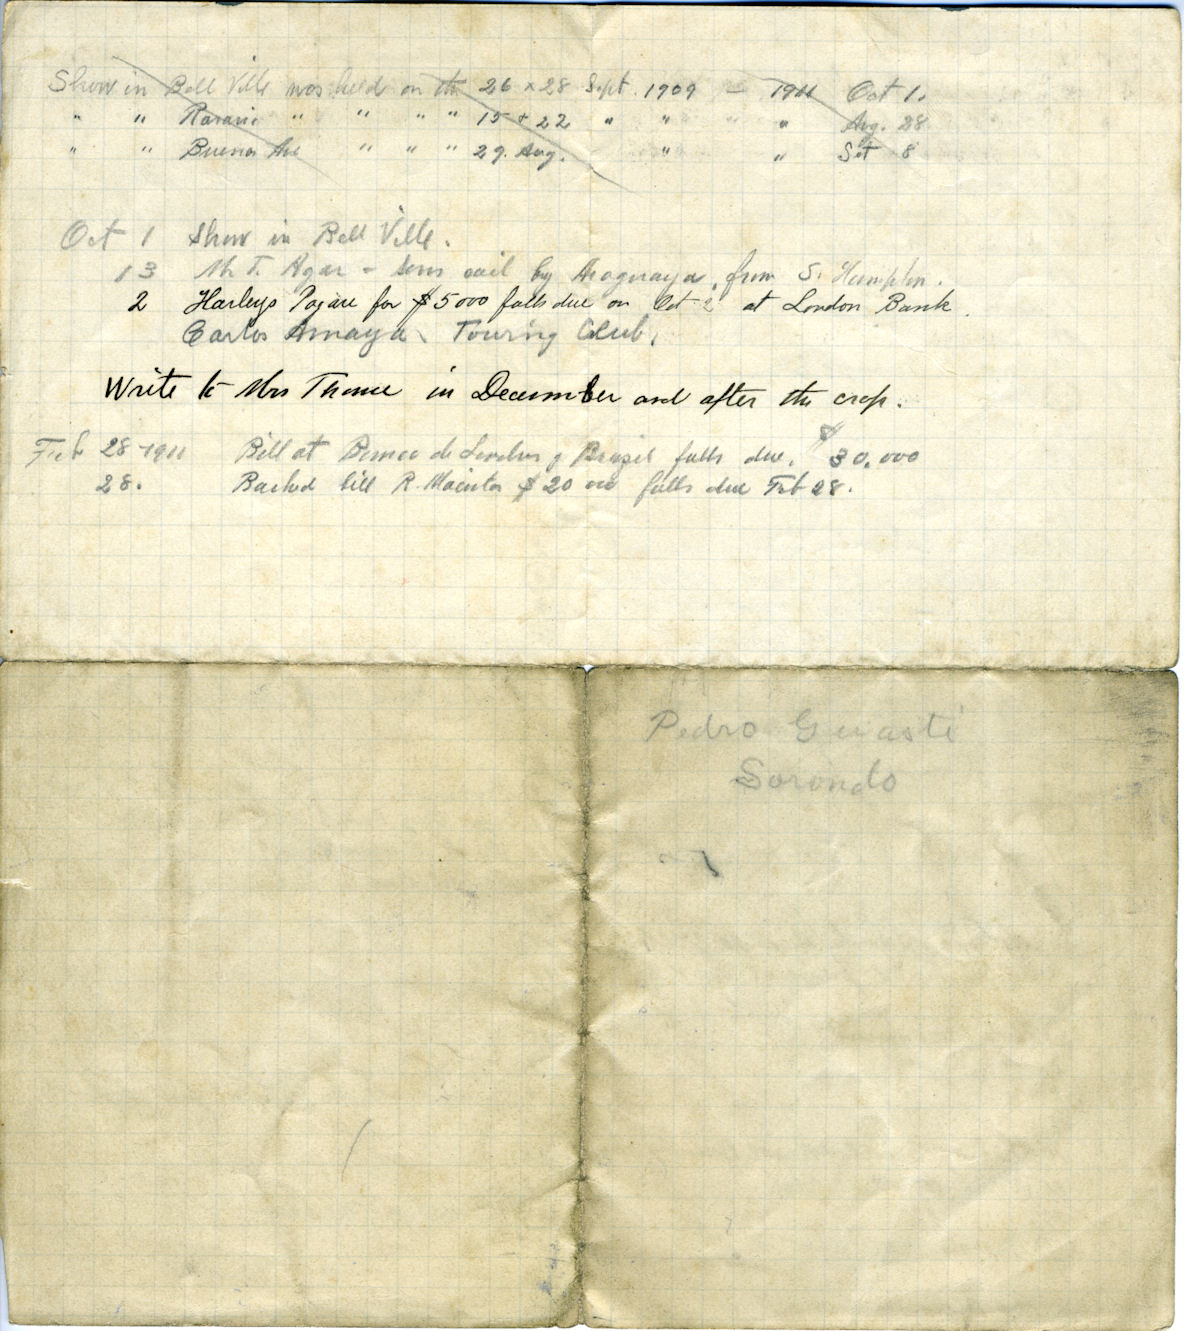 Show in Bell Ville was held on the 26 x 28 Sept. 1909 — 1911 Oct 1.
" " Rosario " " " " 15 + 22 " " " " Aug. 28
" " Buenos " " " 29. Aug. " " Set 8
Oct 1 Show in Bell Ville.
13 Mr T. Agar - sail by Araguaya, from S. Hampton.
2 Harleys Pagare for $5000 falls due on Oct 2 at London Bank.
Carlos Amaya Touring Club.
Write to Mrs in December and after the crop.
Feb 28-1911 Bill at Banco de Londres y Brazil falls due. $30.000
28. Backed bill R. $20 000 falls due Feb 28.
Pedro Guasti
Sorondo